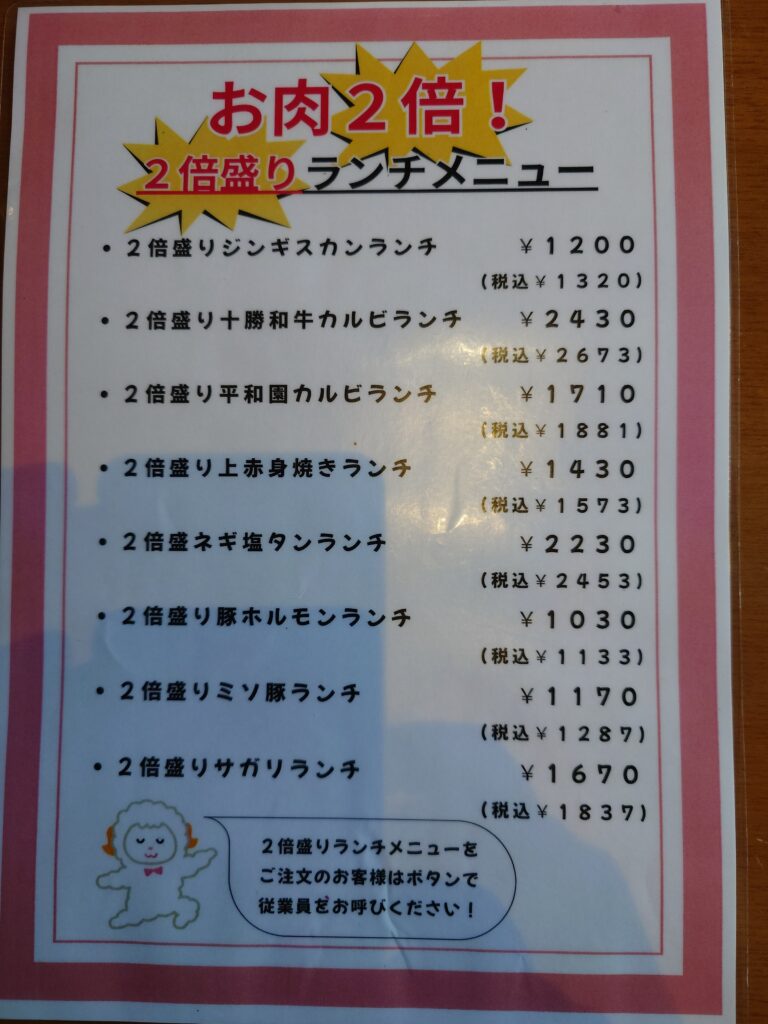 お肉２倍！
２倍盛りランチメニュー
・２倍盛りジンギスカンランチ ￥１２００
(税込￥１３２０)
・２倍盛り十勝和牛カルビランチ ￥２４３０
(税込￥２６７３)
・２倍盛り平和園カルビランチ ￥１７１０
(税込￥１８８１)
・２倍盛り上赤身焼きランチ ￥１４３０
(税込￥１５７３)
・２倍盛ネギ塩タンランチ ￥２２３０
(税込￥２４５３)
・２倍盛り豚ホルモンランチ ￥１０３０
(税込￥１１３３)
・２倍盛りミソ豚ランチ ￥１１７０
(税込￥１２８７)
・２倍盛りサガリランチ ￥１６７０
(税込￥１８３７)
２倍盛りランチメニューを
ご注文のお客様はボタンで
従業員をお呼びください！